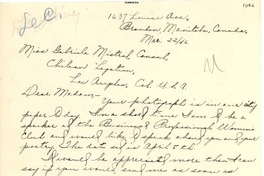 1046
1637 Louise Ave.
Brandon Manitoba, Canada.
Mar. 22/46
Miss Gabriela Mistral, Consul,
Chilean Legation,
Los Angeles, Cal. U.S.A
Dear Madam:-
Your photograph is in our city
paper to day. In a short time I am to be a
speaker at the Business & Professional Women's
Club and would like to speak about you and your
poetry. The date set is April 5th.
I would be appreciative more than I can
say if you would send me as soon as